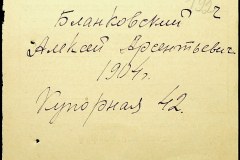 Бланковский
Алексей Арсентьевич
1904г.
Купорная 42.